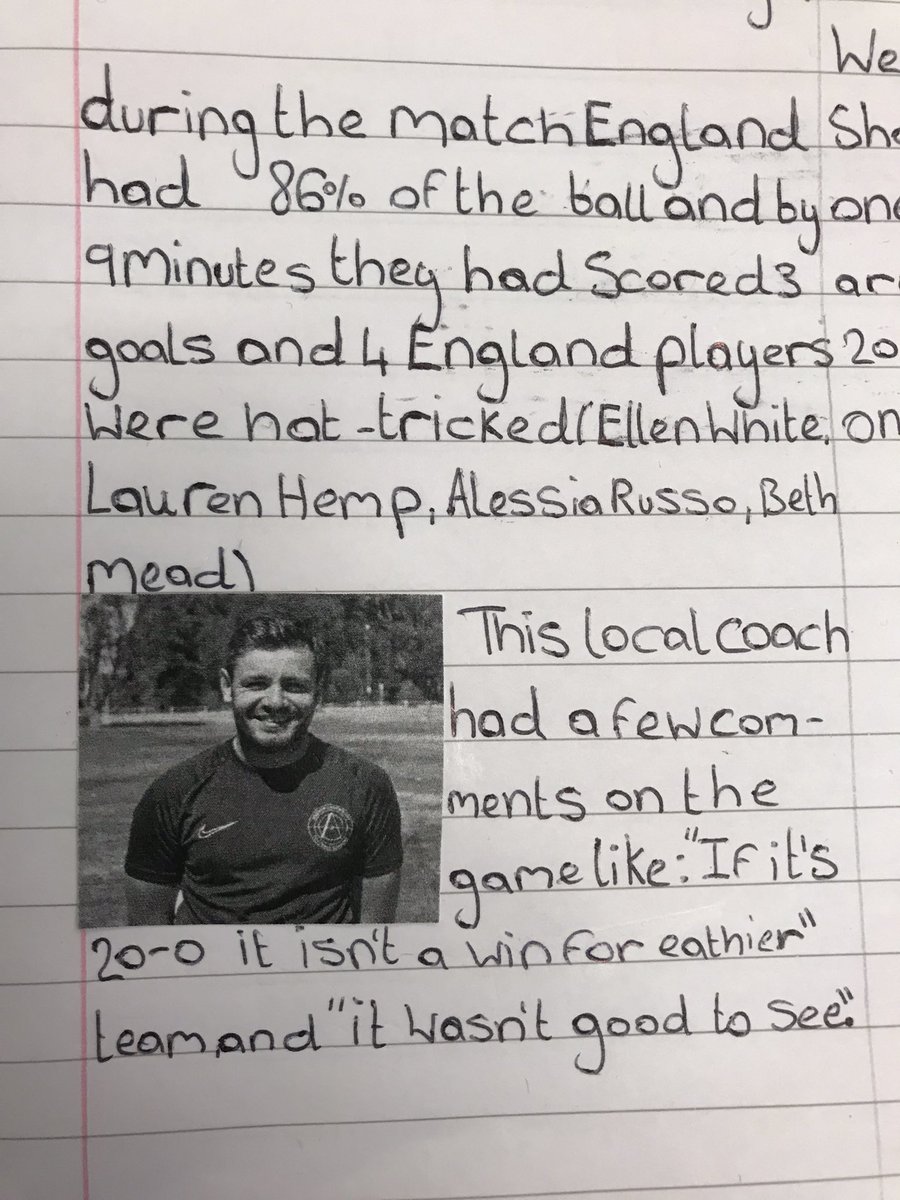 We
during the match England
had 86% of the ball and by
9 minutes they had Scored 3
goals and 4 England players
were hat-tricked (Ellen White,
Lauren Hemp, Alessia Russo, Beth
Mead)
This local coach
had a few com-
ments on the
game like: "If it's
20-0 it isn't a win for eathier"
team, and "it wasn't good to see".
20
on